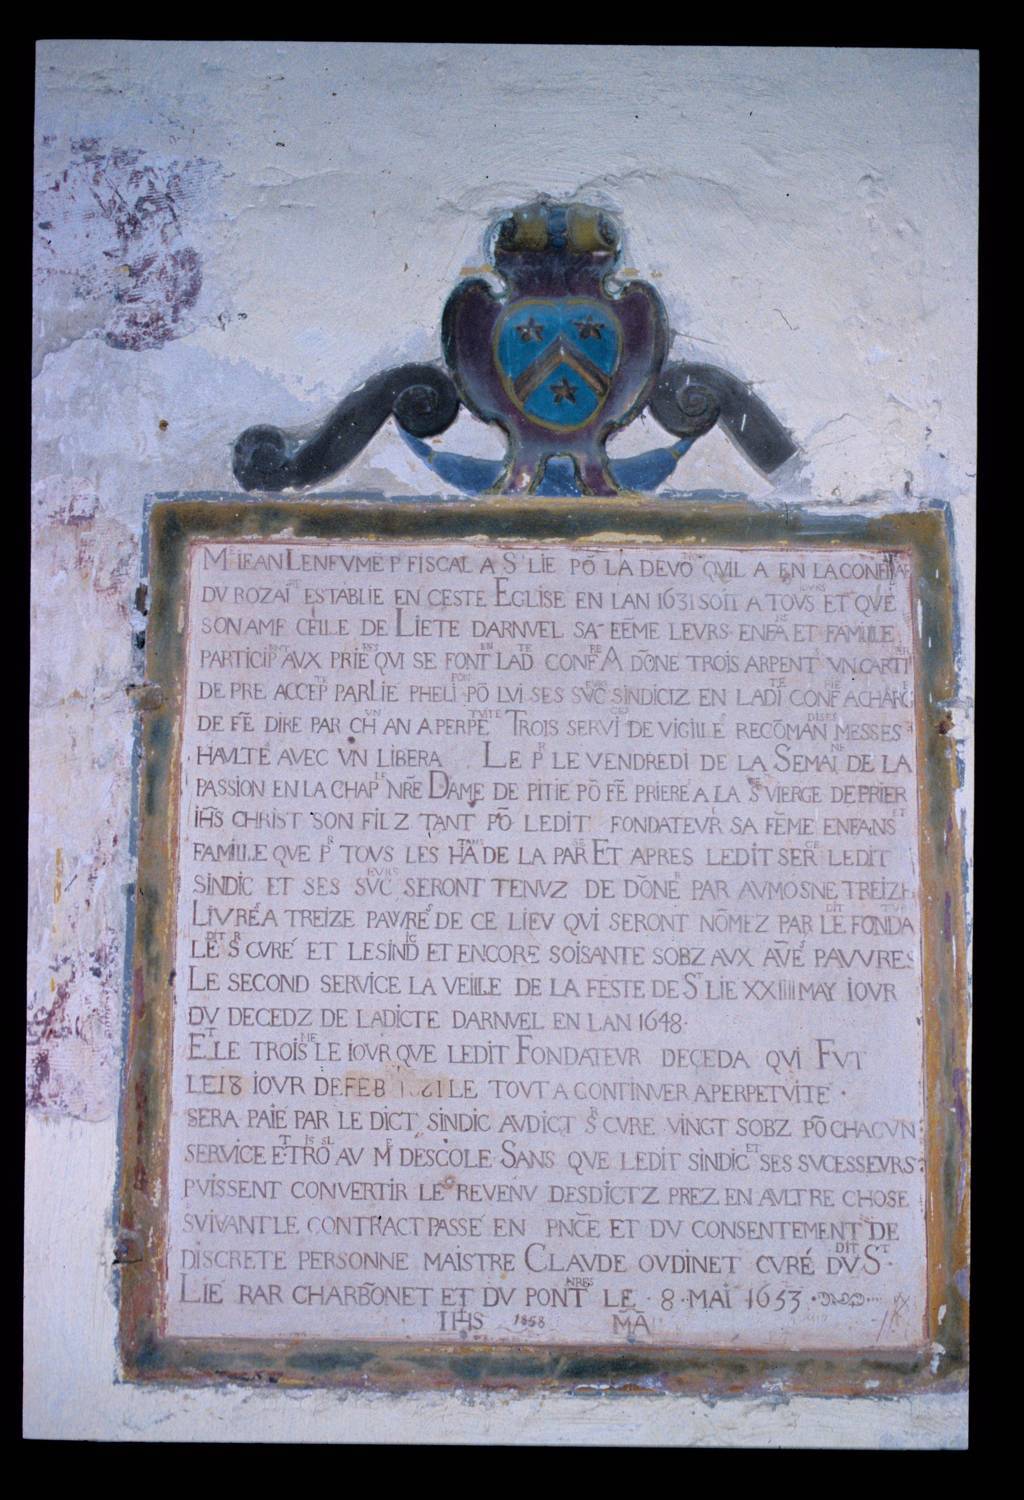 M^E IEAN LENFVME P FISCAL A S^T LIE PŌ LA DEVO^ON QVIL A EN LA CONF
DV ROZAI^RE ESTABLIE EN CESTE EGLISE EN LAN 1631 SOIT A TOVS ET QVE
SON AME CELLE DE LIETE DARNVEL SA FĒME LEVRS ENFA^S ET FAMILLE
PARTICIP^ENT AVX PRIE^RES QVI SE FONT^EN LAD^TE CONF^RE A DŌNE TROIS ARPENT^S VN CARTI^ER
DE PRE ACCEP^TE PAR LIE PHELI^PON PŌ LVI SES SVC^EVRS SINDICTZ EN LADI^TE CONF^RIE A CHARG
DE FĒ DIRE PAR CH^VN AN A PERPE^TVITE TROIS SERVI^CES DE VIGILLE RECŌMAN^DISES MESSES
HAVLTE AVEC VN LIBERA LE P^R LE VENDREDI DE LA SEMAI^NE DE LA
PASSION EN LA CHAP^LE NR̄E DAME DE PITIE PŌ FĒ PRIERE A LA S^TE VIERGE DE PRIER
IH̄S CHRIST SON FILZ TANT PŌ LEDIT FONDATEVR SA FĒME ENFANS^ET
FAMILLE QVE P^R TOVS LES HA^TANS DE LA PAR^SE ET APRES LEDIT SER^CE LEDIT
SINDIC ET SES SVC^EVRS SERONT TENVZ DE DŌNE^R PAR AVMOSNE TREIZE
LIVRE A TREIZE PAVVRE^S DE CE LIEV QVI SERONT NŌMEZ PAR LE^DIT FONDA^TVR
LE^DIT S^R CVRÉ ET LE SIND^IC ET ENCORE SOISANTE SOBZ AVX AV̄E^S PAVVRES
LE SECOND SERVICE LA VEILLE DE LA FESTE DE S^T LIE XXIIII MAY IOVR
DV DECEDZ DE LADICTE DARNVEL EN LAN 1648.
E^T LE TROIS^ME LE IOVR QVE LEDIT FONDATEVR DECEDA QVI FVT
LE 18 IOVR DE FEB LE TOVT A CONTINVER A PERPETVITE .
SERA PAIÉ PAR LE DICT SINDIC AVDICT S^R CVRE VINGT SOBZ PŌ CHACVN
SERVICE E^T TRO^IS S^L AV M^E DESCOLE SANS QVE LEDIT SINDIC^ET SES SVCESSEVRS
PVISSENT CONVERTIR LE REVENV DESDICTZ PREZ EN AVLTRE CHOSE
SVIVANT LE CONTRACT PASSE EN PNC̄E ET DV CONSENTEMENT DE
DISCRETE PERSONNE MAISTRE CLAVDE OVDINET CVRÉ DV^DIT S^T
LIE RAR CHARBŌNET ET DV PONT^NRES LE . 8 . MAI 1653 .
IHS 1858 MA